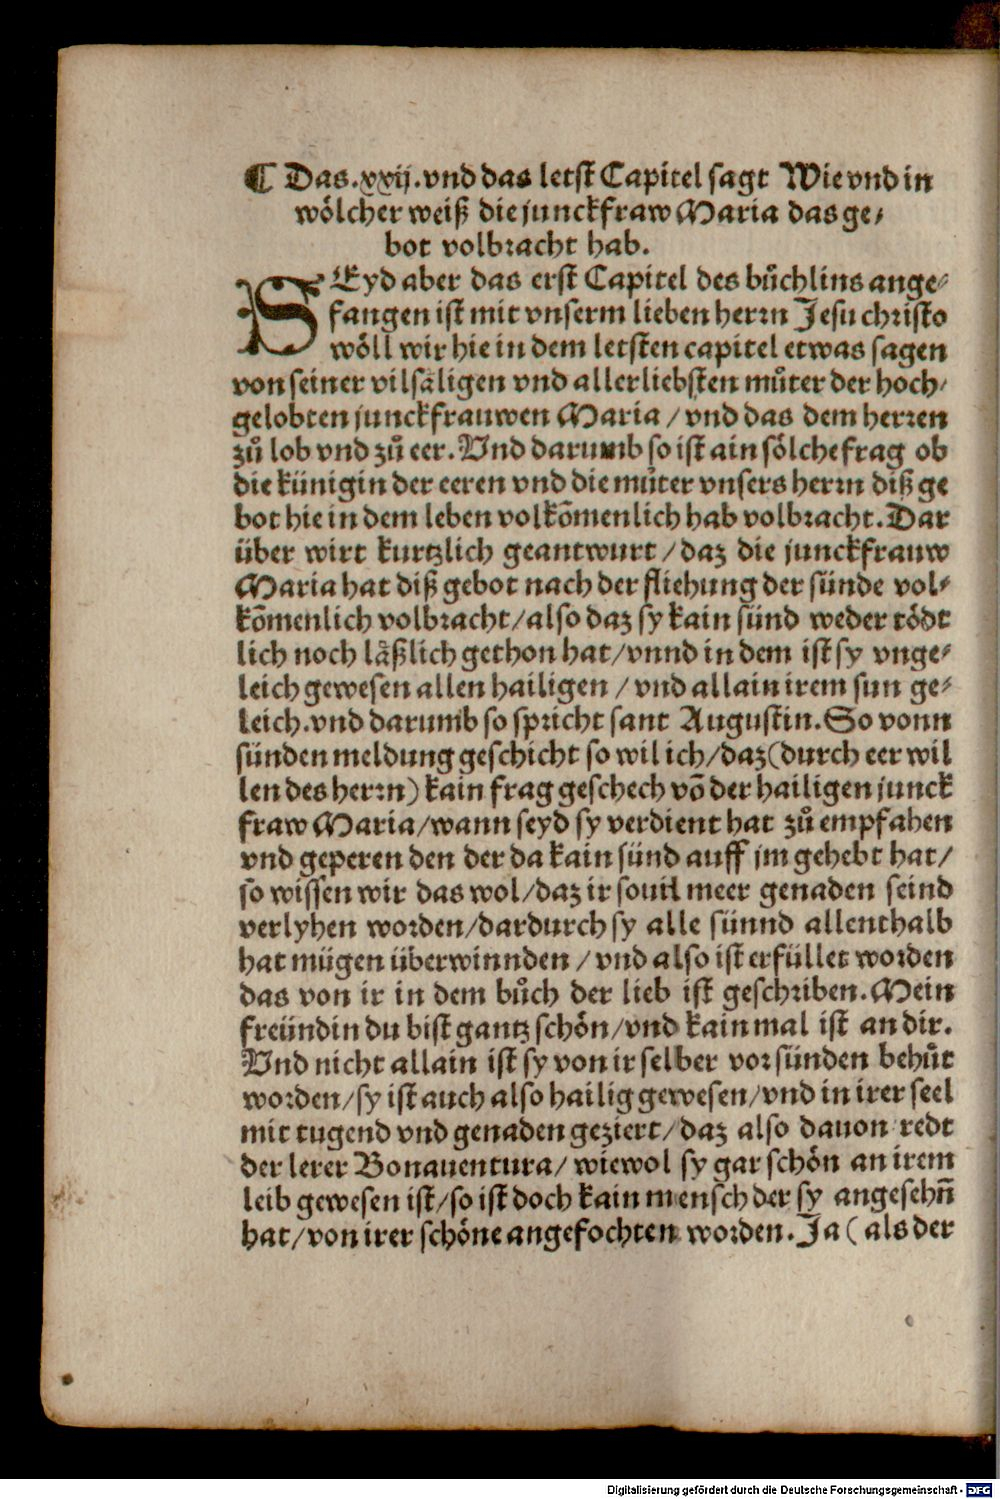 ¶ Das .xxij. vnd das letst Capitel sagt Wie vnd in
wölcher weiß die junckfraw Maria das ge⸗
bot volbracht hab.
SEyd aber das erst Capitel des bůchlins ange⸗
fangen ist mit vnserm lieben herrn Jesu christo
wöll wir hie in dem letsten capitel etwas sagen
von seiner vilsäligen vnd allerliebsten můter der hoch⸗
gelobten junckfrauwen Maria / vnd das dem herren
zů lob vnd zů eer. Vnd darumb so ist ain sölche frag ob
die künigin der eeren vnd die můter vnsers herrn diß ge
bot hie in dem leben volkōmenlich hab volbracht. Dar
über wirt kurtzlich geantwurt / daz die junckfrauw
Maria hat diß gebot nach der fliehung der sünde vol⸗
kōmenlich volbracht / also daz sy kain sünd weder tödt
lich noch läßlich gethon hat / vnnd in dem ist sy vnge⸗
leich gewesen allen hailigen / vnd allain irem sun ge⸗
leich. vnd darumb so spricht sant Augustin. So vonn
sünden meldung geschicht so wil ich / daz (durch eer wil
len des herrn) kain frag geschech vō der hailigen junck
fraw Maria / wann seyd sy verdient hat zů empfahen
vnd geperen den der da kain sünd auff jm gehebt hat /
so wissen wir das wol / daz ir souil meer genaden seind
verlyhen worden / dardurch sy alle sünnd allenthalb
hat mügen überwinnden / vnd also ist erfüllet worden
das von ir in dem bůch der lieb ist geschriben. Mein
freündin du bist gantz schön / vnd kain mal ist an dir.
Vnd nicht allain ist sy von ir selber vor sünden behůt
worden / sy ist auch also hailig gewesen / vnd in irer seel
mit tugend vnd genaden geziert / daz also dauon redt
der lerer Bonauentura / wiewol sy gar schön an irem
leib gewesen ist / so ist doch kain mensch der sy angesehn̄
hat / von irer schöne angefochten worden. Ja (als der
Digitalisierung gefördert durch die Deutsche Forschungsgemeinschaft - DFG